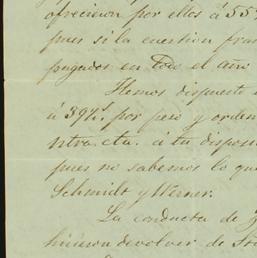 ofrecieron por ellos á 55
pues si la cuestion fran
pagados en todo el año
Hemos dispuesto
á 39 7/8 por peso y orden
ntra. cta. á tu dispos
pues no sabemos lo que
Schmidt y Werner.
La conducta de
hicieron devolver de